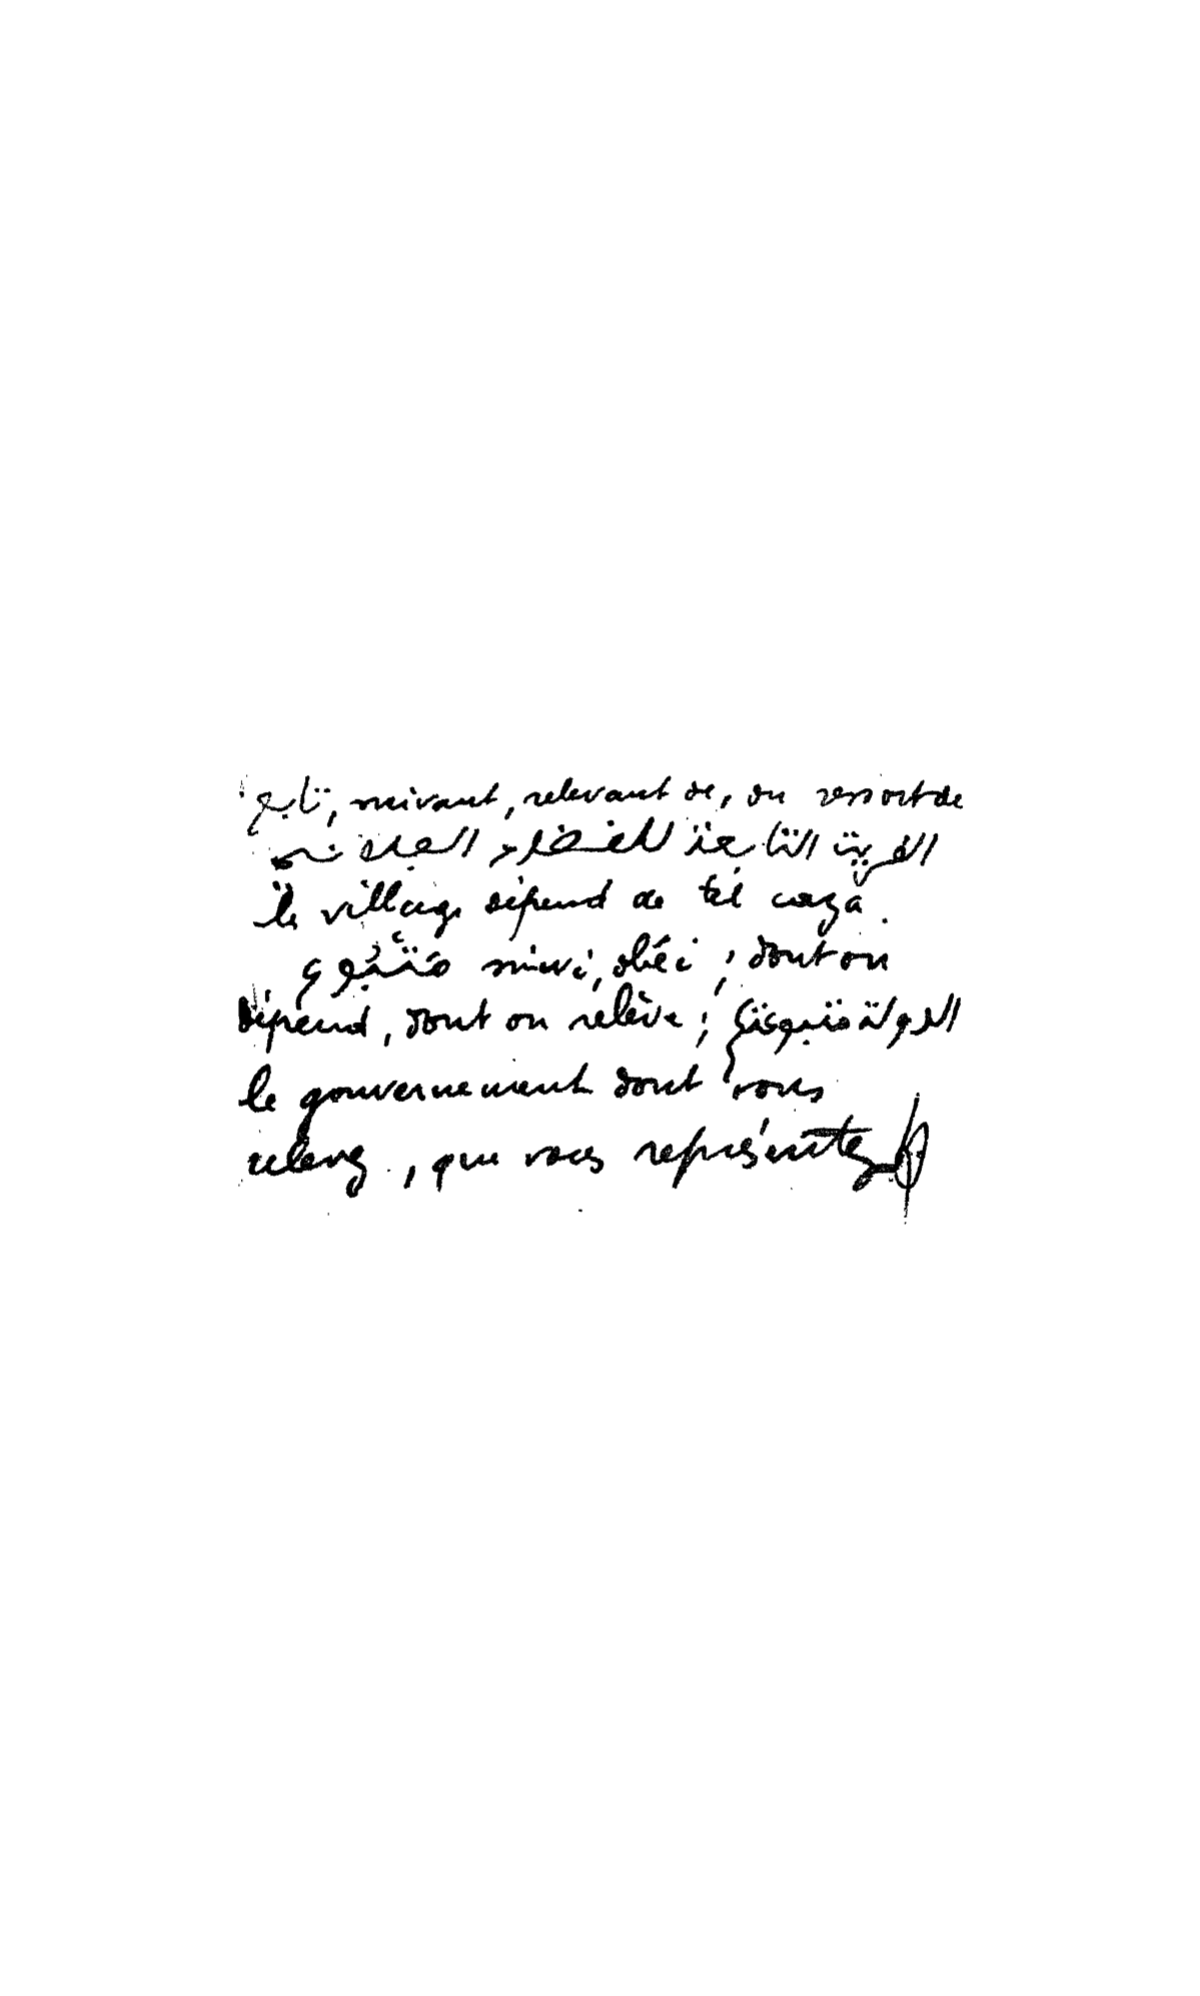 تابع, suivant, relevant de, du ressort de
القرية التابعة للقضاء الفلاني
le village dépend de tel caza.
مَتْبُوع suivi, obéi ; dont on
dépend, dont on relève ; الدولة متبوعتك
le gouvernement dont vous
relevez, que vous représentez